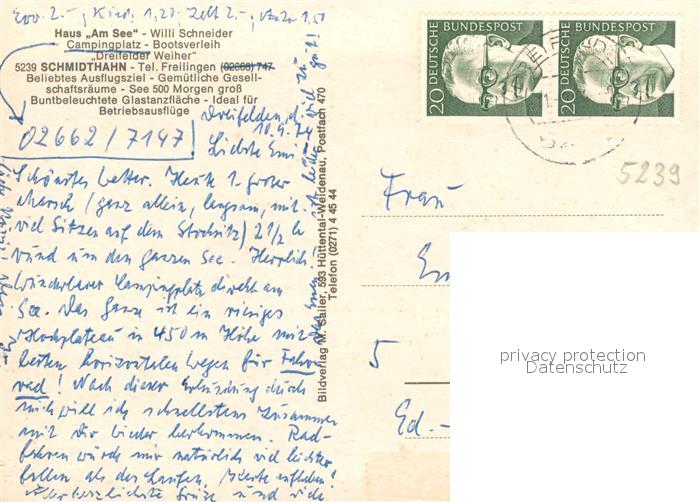 Erw. 2.-, Kind. 1,20 Zelt 2.-, Auto 1.50
Haus „Am See“ - Willi Schneider
Campingplatz - Bootsverleih
„Dreifelder Weiher“
5239 SCHMIDTHAHN - Tel. Freilingen (02666) 747
Beliebtes Ausflugsziel - Gemütliche Gesell-
schaftsräume - See 500 Morgen groß
Buntbeleuchtete Glastanzfläche - Ideal für
Betriebsausflüge
02662/7147
Dreifelden, d.
10.9.74
Liebste
Schönstes Wetter. Heute 1. großer
Marsch (ganz allein, langsam, mit
viel Sitzen auf dem Stocksitz) 2 1/2 h
rund um den ganzen See. Herrlich!
Wunderbarer Campingplatz direkt am
See. Das Ganze ist ein riesiges
Hochplateau in 450 m Höhe mit
besten horizontalen Wegen für Fahr-
rad! Nach dieser Erkundung durch
mich will ich schnellstens zusammen
mit Dir wieder herkommen. Rad-
fahren würde mir natürlich viel leichter
fallen als das Laufen. Karte aufheben!
Allerherzlichste Grüße und viele
Bildverlag M. Sailer, 593 Hüttental-Weidenau, Postfach 470
Telefon (0271) 4 45 44
DEUTSCHE BUNDESPOST
20
DEUTSCHE BUNDESPOST
20
5239
Frau
5
Ed.-
privacy protection
Datenschutz